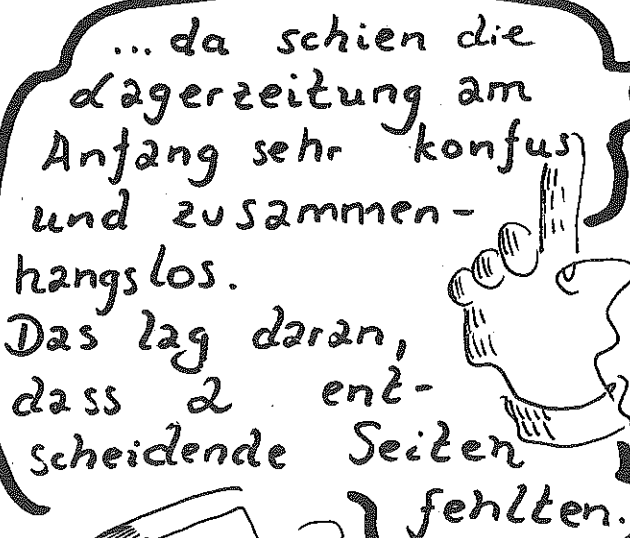 ...da schien die
Lagerzeitung am
Anfang sehr konfus
und zusammen-
hangslos.
Das lag daran,
dass 2 ent-
scheidende Seiten
fehlten.